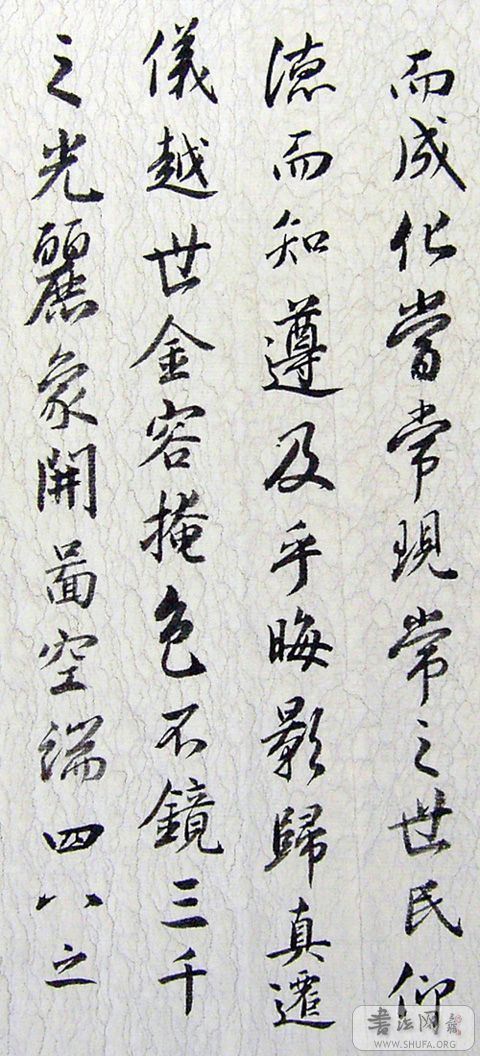 而成化當常現常之世民仰
德而知遵及乎晦影歸真遷
儀越世金容掩色不鏡三千
之光麗象開圖空端四八之
书法网
WWW.SHUFA.ORG